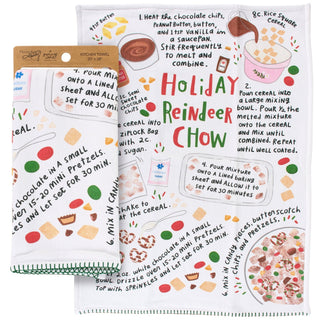 KITCHEN TOWEL
4. POUR MIXTURE
ONTO A LINED BAKING
SHEET AND ALLOW IT TO
SET FOR 30 MIN.
CHOCOLATE IN A SMALL
OVEN 15-20 MINI PRETZELS.
AND LET SET FOR 30 MIN.
6. MIX IN CANDY
1. HEAT THE CHOCOLATE CHIPS,
PEANUT BUTTER, BUTTER,
AND STIR VANILLA IN
A SAUCEPAN.
STIR FREQUENTLY
TO MELT AND
COMBINE.
8C. RICE SQUARE
CEREAL
HOLIDAY
REINDEER
CHOW
2.
POUR CEREAL INTO
A LARGE MIXING
BOWL. POUR
THE MELTED
MIXTURE
ONTO THE CEREAL
AND MIX UNTIL
COMBINED.
REPEAT
UNTIL WELL COATED.
SEMI
SWEET
CHOCOLATE
CHIPS
CEREAL INTO
ZIPLOCK BAG
WITH 2C.
SUGAR.
SHAKE TO
THE CEREAL.
4. POUR MIXTURE
ONTO A LINED BAKING
SHEET AND ALLOW IT TO
SET FOR 30 MINUTES
2OZ. WHITE CHOCOLATE IN A SMALL
DRIZZLE OVER 15-20 MINI PRETZELS.
TOP WITH SPRINKLES AND LET SET FOR 30 MIN.
6. MIX IN CANDY PIECES, BUTTERSCOTCH
CHIPS, AND PRETZELS.